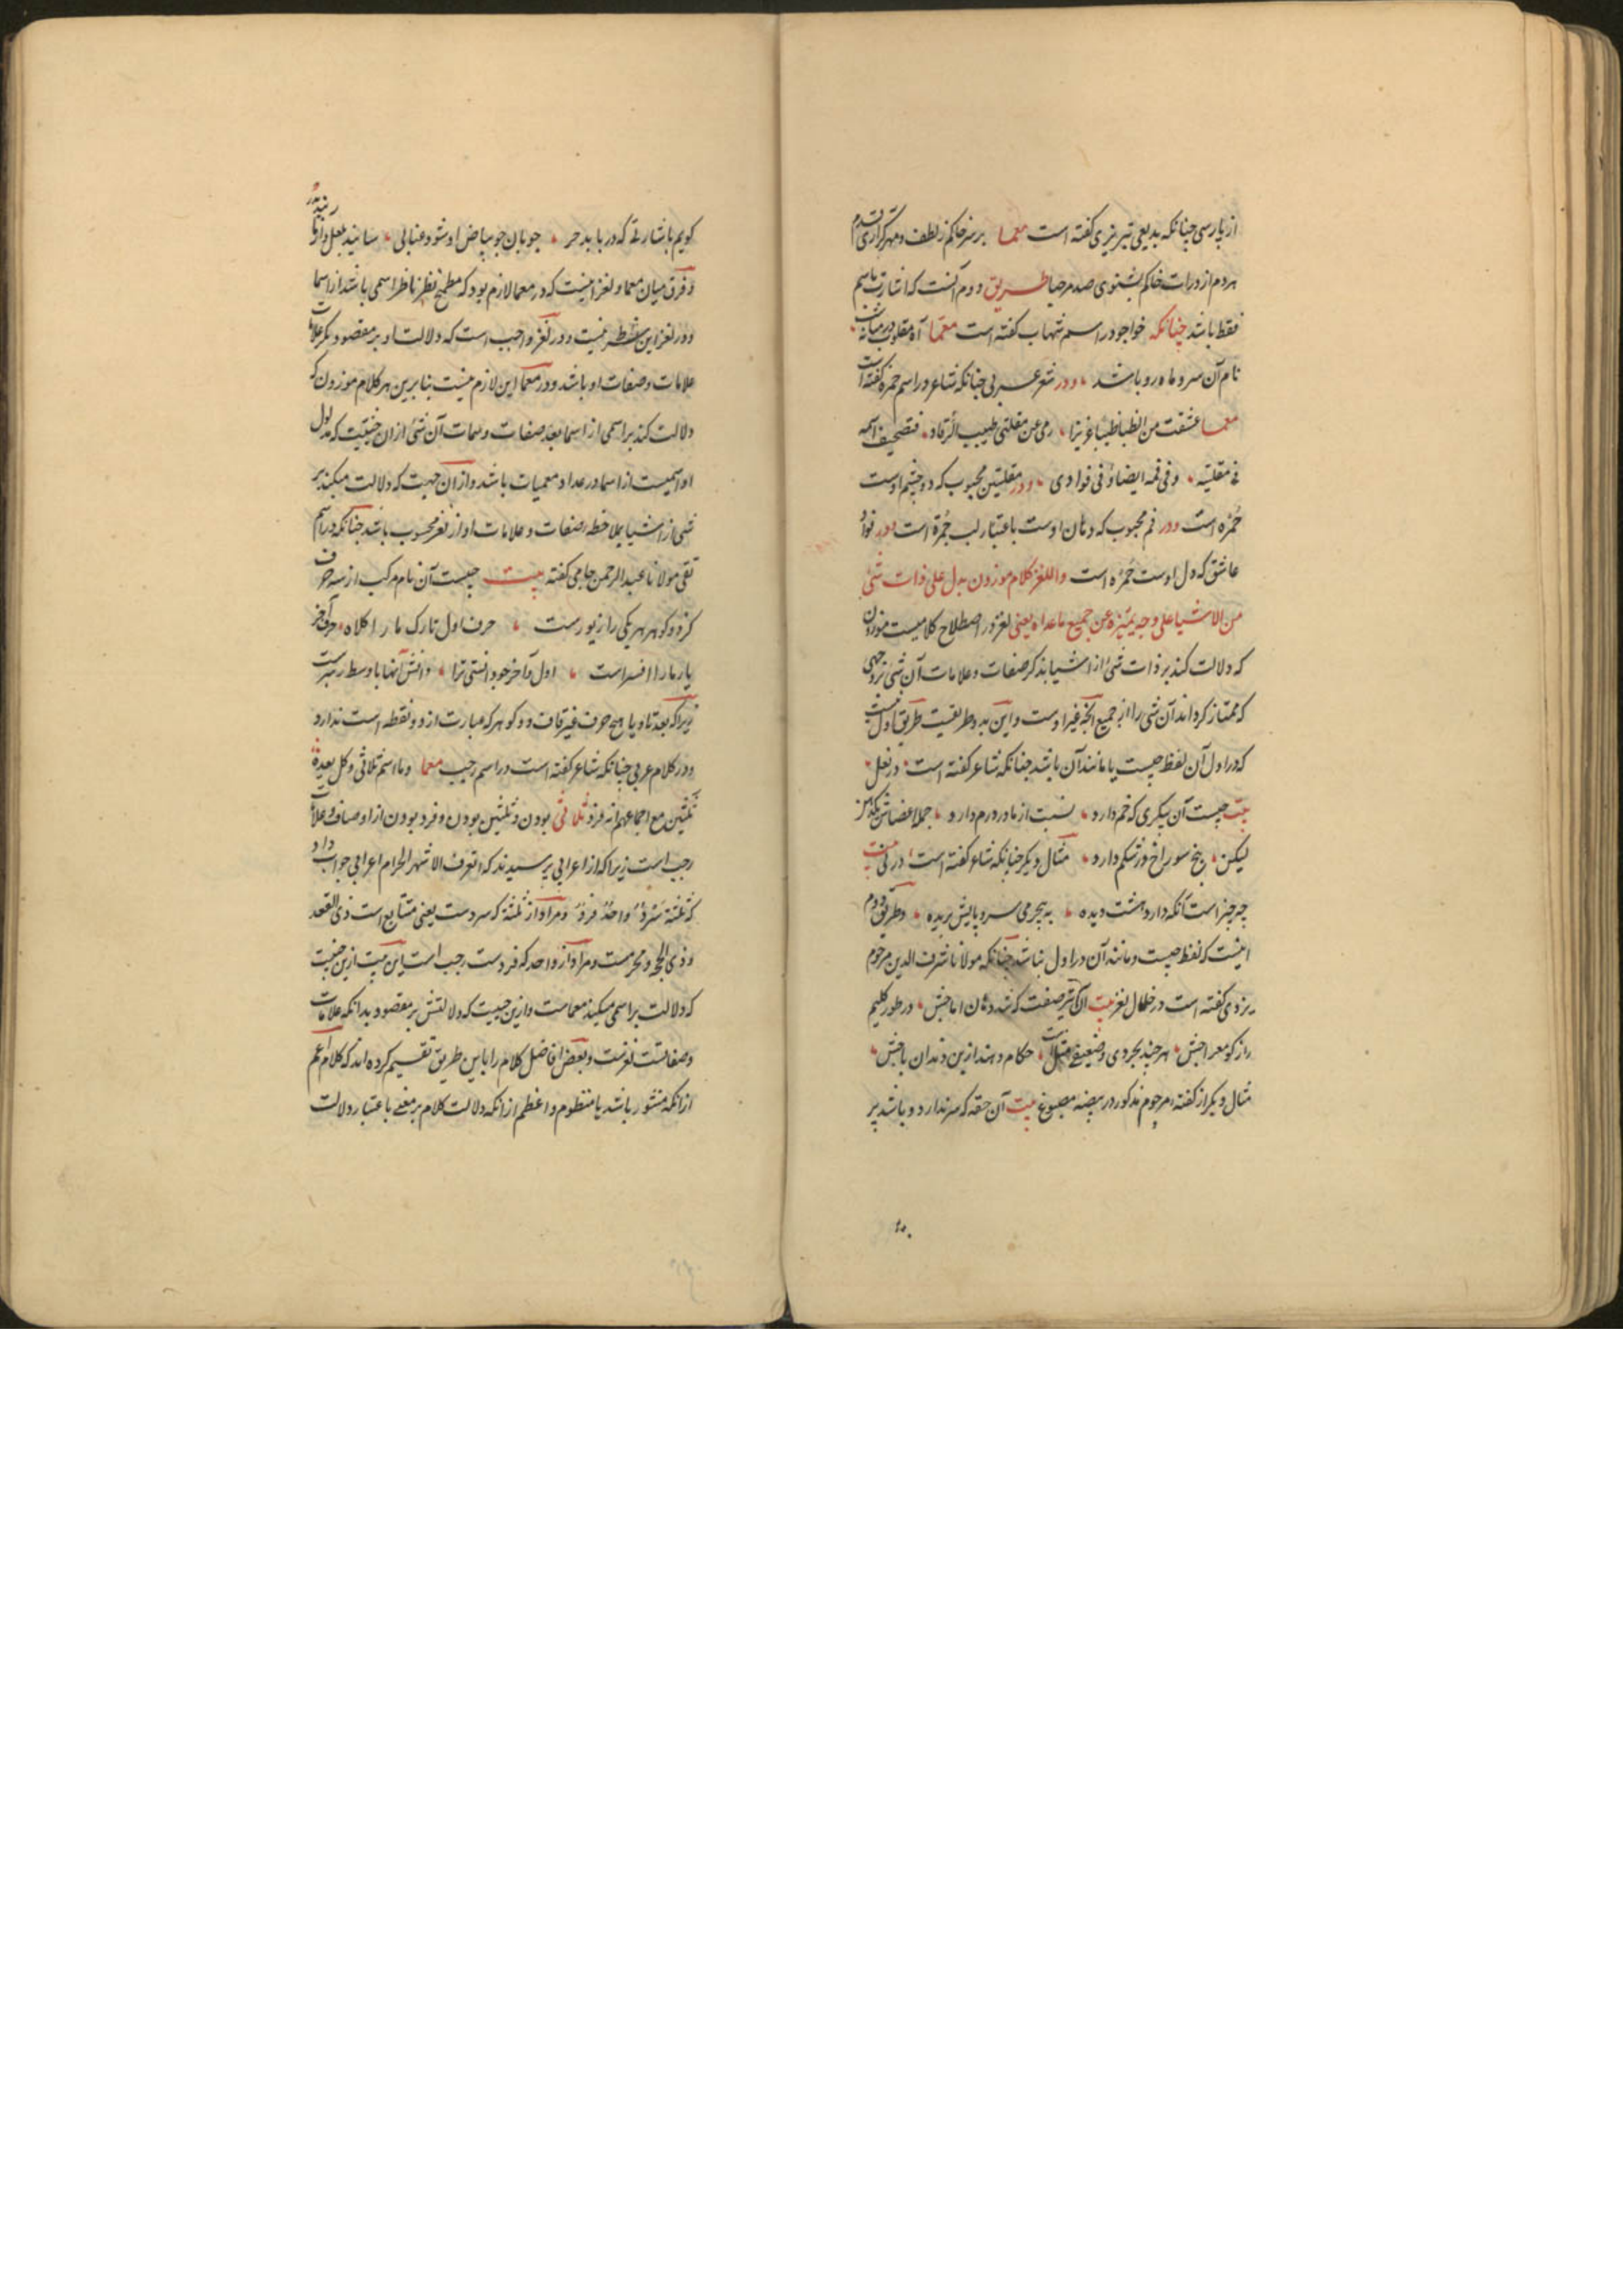 از پارسی چنانکه بدیعی تبریزی گفته است معما برسر خاکم ز لطف و مهر گر آری قدم
هر دم از ذرات خاکم بشنوی صد مرحبا طریق دوم آنست که اشارت باسم
فقط باشد چنانکه خواجو در اسم شهاب گفته است معما آه مقلوب در میانه شب
نام آن سرو ماه رو باشد و در شعر عربی چنانکه شاعر در اسم حمزه گفته است
معما عشقت من الظبا ظبیا غریزا رمی عن مقلتی طیب الرقاد فتصحیف اسمه
فی مقلتیه وفی فمه ایضا و فی فوادی و در مقلتین محبوب که دو چشم اوست
حمزه است و در فم محبوب که دهان اوست باعتبار لب جمرة است و در فواد
عاشق که دل اوست حمزه است واللغز کلام موزون یدل علی ذات شئ
من الاشیا علی وجه یمیزه عن جمیع ماعداه یعنی لغز در اصطلاح کلامیست موزون
که دلالت کند بر ذات شئ از اشیا بذکر صفات و علامات آن شی بر وجهی
که ممتاز گرداند آن شی را از جمیع آنچه غیر اوست و این به دو طریقست طریق اول آنست
که در اول آن لفظ چیست یا مانند آن باشد چنانکه شاعر گفته است در نعل
بیت چیست آن پیکری که خم دارد نسبت از ماه در ورم دارد جمله اعضاش
لیکن پنج سوراخ در شکم دارد مثال دیگر چنانکه شاعر گفته است در نی بیت
چه چیز است آنکه دارد هشت دیده به بیجرمی سر و پایش بریده و طریق دوم
اینست که لفظ چیست و مانند آن در اول نباشد چنانکه مولانا شرف الدین مرحوم
یزدی گفته است در خلال لغز بیت آن صفت که شد دهان در طور کلیم
راز گو هر چند بخردی و ضعیفی حکام دهند ازین دندان
مثال دیگر از گفته مرحوم مذکور در بیضه مصبوغ بیت آن حقه که سر ندارد و باشد پر
گویم باشارتی که دریابد حر جو بان جو بیاض او شود عنابی سایند بلعل و
و فرق میان معما و لغز اینست که در معما لازم بود که مطمح نظر ناظر اسمی باشد از اسما
و در لغز این شرط نیست و در لغز واجب است که دلالت او بر مقصود بذکر علامات
علامات و صفات او باشد و در معما این لازم نیست بنابرین هر کلام موزون که
دلالت کند بر اسمی از اسما بعد صفات و سمات آن شئ از ان حیثیت که مدلول
او اسمیست از اسما در عداد معمیات باشد و از آن جهت که دلالت میکند بر
شئ از اشیا بملاحظه صفات و علامات او از لغز محسوب باشد چنانکه در اسم
تقی مولانا عبدالرحمن جامی گفته بیت چیست آن نام مرکب از سه حرف
کز دو گوهر هر یکی را زیورست حرف اول تارک ما را کلاه حرف آخر
پار ما را افسر است اول و آخر خود دانستی ترا دانش آنها با وسط رهبرست
زیرا که بعد تا و یا هیچ حرف غیر قاف دو گوهر که عبارت از دو نقطه است ندارد
و در کلام عربی چنانکه شاعر گفته است در اسم رجب معما وما اسم ثلاثی وکل یعده
ثلثین مع اجماعهم انه فرد ثلاثی بودن و ثلثین بودن و فرد بودن از اوصاف و علامات
رجب است زیرا که از اعرابی پرسیدند که اتعرف الاشهر الحرام اعرابی جواب داد
که ثلثة سرد واحد فرد و مراد از ثلثه که سردست یعنی متتابع است ذی القعد
و ذی الحجه و محرمست و مراد از واحد که فردست رجب است این بیت ازین حیثیت
که دلالت بر اسمی میکند معماست و ازین حیثیت که دلالتش بر مقصود بدانکه علامات
و صفاتست لغزست و بعض افاضل کلام را باین طریق تقسیم کرده اند که کلام اعم
از انکه منثور باشد یا منظوم و اعظم از انکه دلالت کلام بر معنی باعتبار دلالت